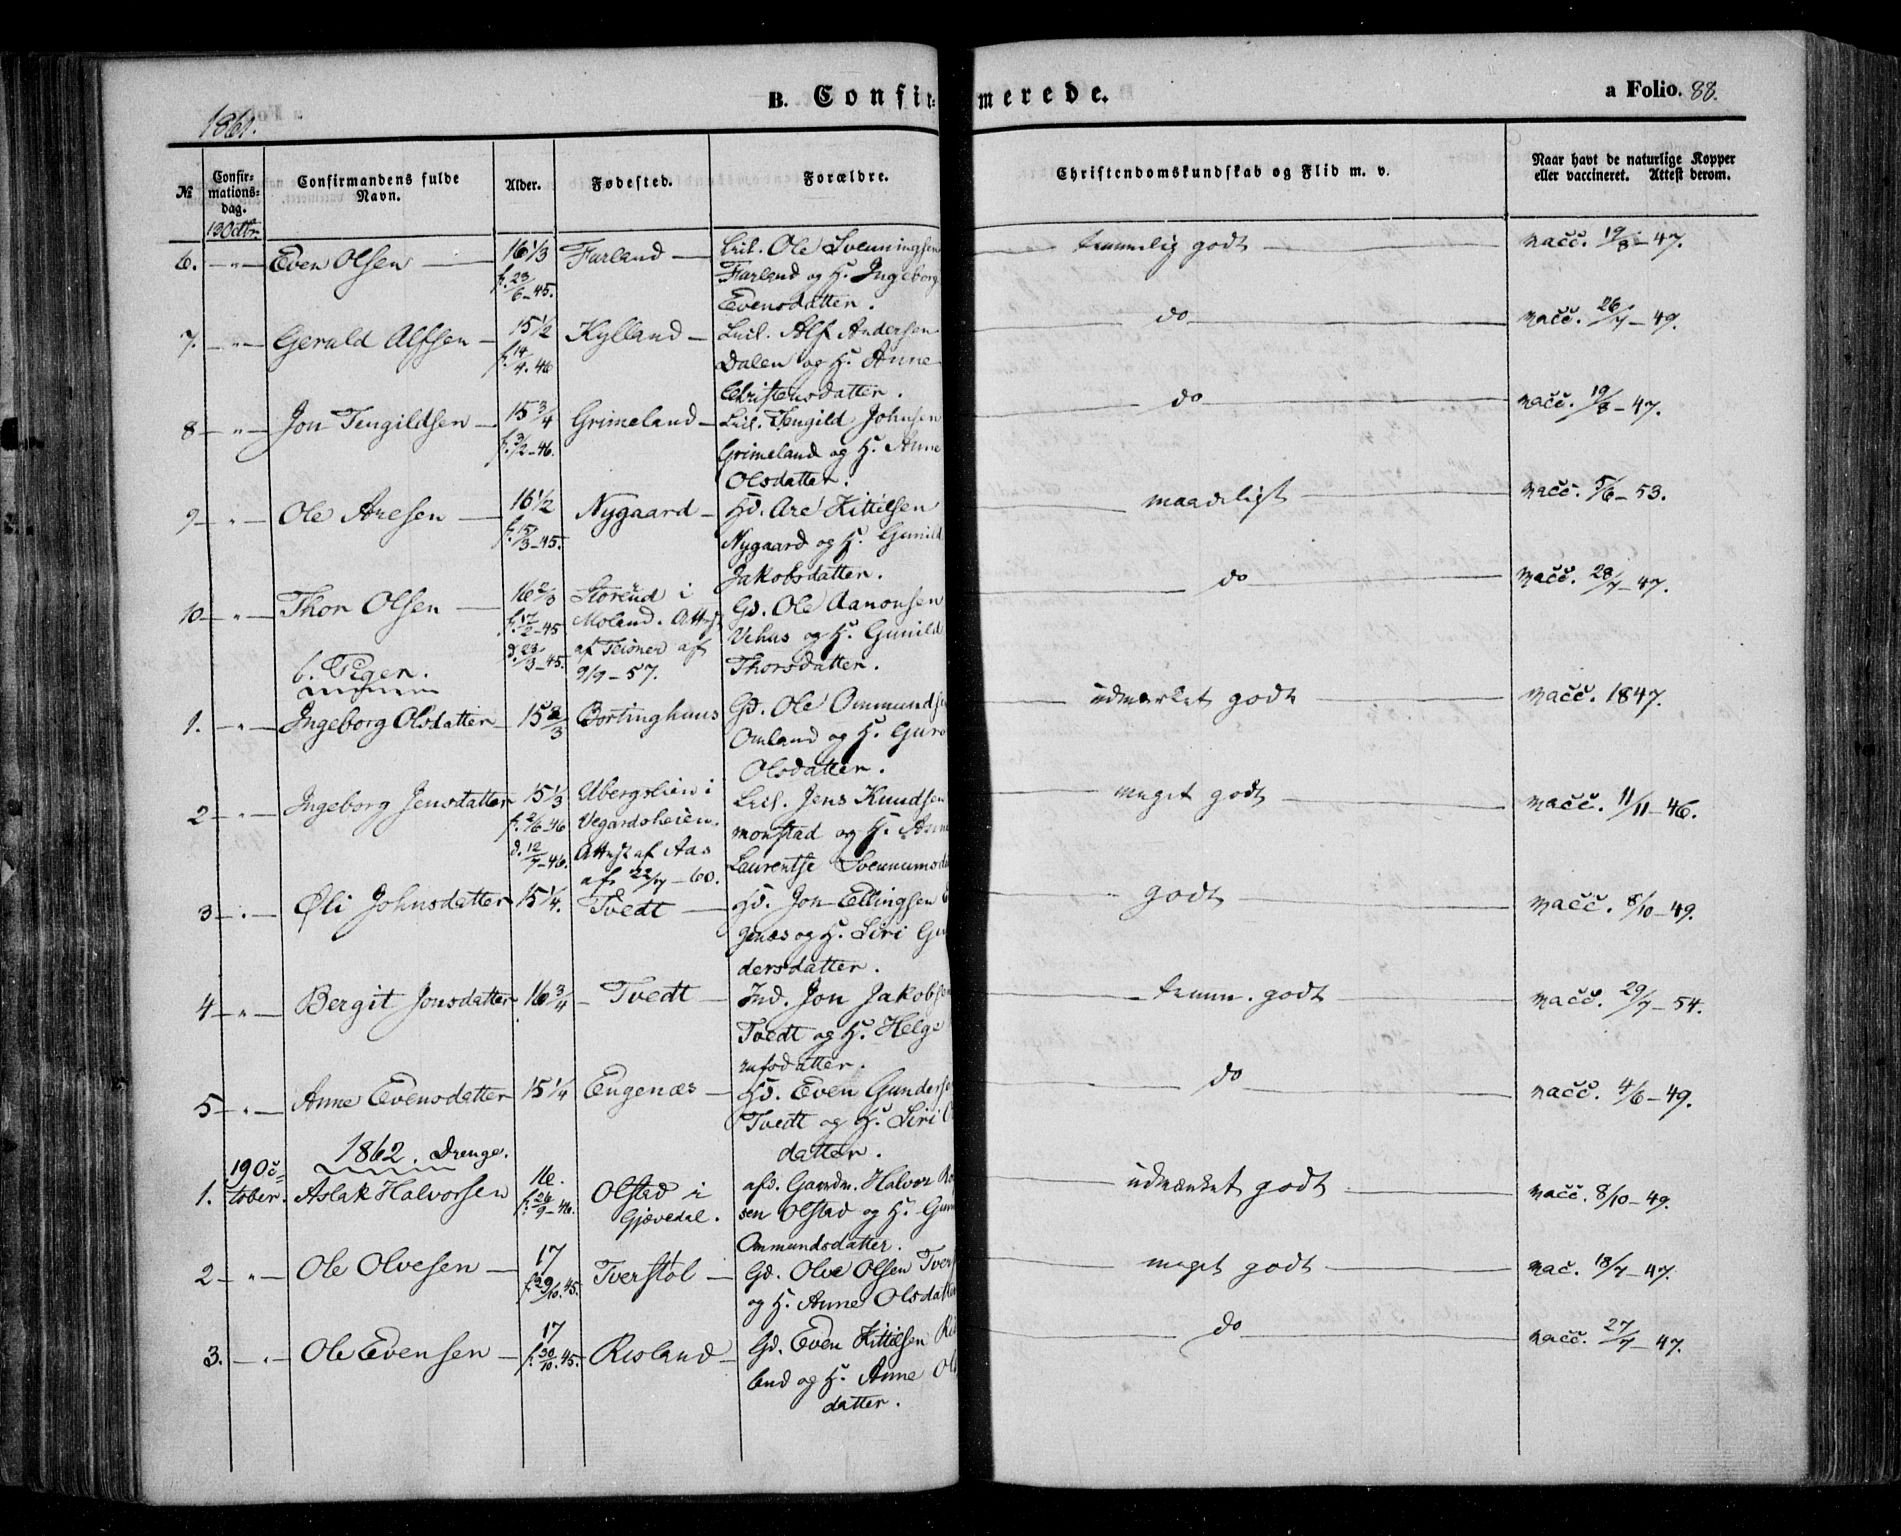 1861.
B. Confir-merede.
a Folio. 88.
№ Confir-mations-dag. Confirmandens fulde Navn. Alder. Fødested. Forældre. Christendomskundskab og Flid m. v. Naar havt de naturlige Kopper eller vaccineret. Attest derom.
13 Octbr.
6. — " — Even Olsen — 16 1/3 f. 23/6-45. Farland — Leil. Ole Svenningsen Farland og H. Ingeborg Evensdatter. temmelig godt vacc. 19/8-47.
7. — " — Gerald Alfsen — 15 1/2 f. 14/4.46 Kylland — Leil. Alf Andersen Dalen og H. Anne Christensdatter. do vacc. 26/7-49.
8 — " — Jon Tengildsen — 15 3/4 f. 3/2-46. Grimeland — Leil. Tengild Johnsen Grimeland og H. Anne Olsdatter. do vacc. 19/8-47.
9 — " — Ole Aresen — 16 1/2 f. 15/3-45. Nygaard — Hd. Are Kittilsen Nygaard og H. Gunild Jakobsdatter. maadeligt vacc. 5/6-53.
10 — " — Thor Olsen — 16 2/3 f. 17/2-45 d. 23/3-45. Storeud i Moland. Attest af Teisner af 9/9-57. Gd. Ole Aanonsen Vehus og H. Gunild Thorsdatter. do vacc. 28/7-47.
b. Piger.
1. — " — Ingeborg Olsdatter — 15 2/3 Bortinghuus Gd. Ole Ommunds Omland og H. Guro Olsdatter. udmærket godt vacc. 1847.
2 — " — Ingeborg Jensdatter 15 1/3 f. 2/6-46 d. 12/7-46. Ubergslien i Vegardsheien. Attest af Aas af 22/7-60. Leil. Jens Knudsen Monstad og H. Anne Laurentse meget godt vacc. 11/11-46.
3 — " — Øli Johnsdatter 15 1/4. Tvedt — Hd. Jon Ellingsen genæs og H. Siri Gundersdatter. godt vacc. 8/10-49.
4 — " — Bergit Jonsdatter 16 3/4 — Tvedt — Ind. Jon Jakobsen Tvedt og H. Helge datter. temm. godt vacc. 29/7-54.
5 — " — Anne Evensdatter 15 1/4 Engenæs — Hd. Even Gundersen Tvedt og H. Siri datter. do vacc. 4/6-49.
1862. Drenge.
19 October.
1. Aslak Halvorsen 16. f. 26/9-46. Olstad i Gjøvedal. afd. Gaardm. Halvor sen Olstad og H. Gun Ommundsdatter. udmærket godt vacc. 8/10-49.
2 — " — Ole Olvesen — 17 f. 29/10.45. Tverstøl — Gd. Olve Olsen Tverst og H. Anne Olsdatter meget godt vac. 18/7-47.
3. — " — Ole Evensen — 17 f. 30/10.45. Risland — Gd. Even Kittilsen Risland og H. Anne Olsdatter. do vacc. 27/7-47.